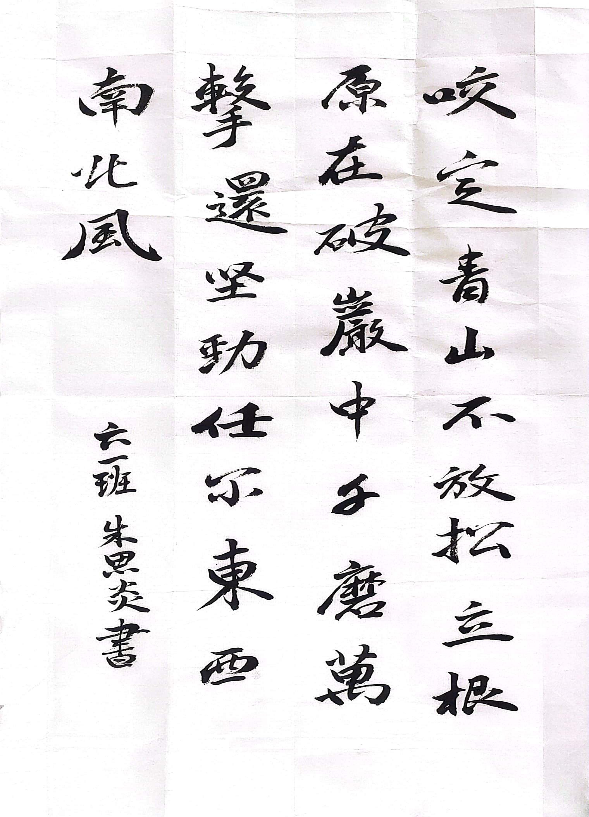 咬定青山不放松立根
原在破巖中千磨萬
擊還坚勁任尔東西
南北風
六一班朱思炎書